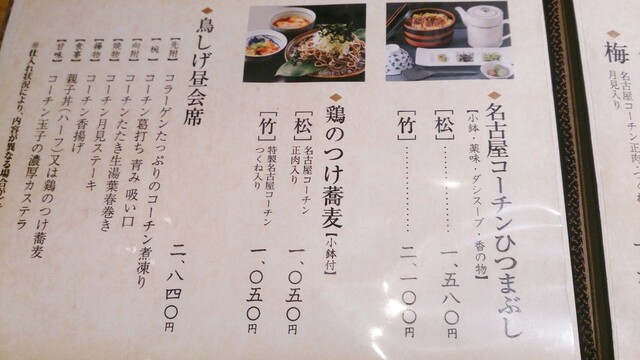 梅
名古屋コーチン正肉
月見入り
◆名古屋コーチンひつまぶし
【小鉢・薬味・ダシスープ・香の物】
［松］………………一、五八〇円
［竹］………………二、一〇〇円
◆鶏のつけ蕎麦【小鉢付】
［松］名古屋コーチン正肉入り 一、〇五〇円
［竹］特製名古屋コーチンつくね入り 一、〇五〇円
◆鳥しげ昼会席
［先附］コラーゲンたっぷりのコーチン煮凍り
［椀］コーチン葛打ち 青み 吸い口
［向附］コーチンたたき生湯葉春巻き
［焼物］コーチン月見ステーキ
［揚物］コーチン香揚げ
［食事］親子丼（ハーフ）又は鶏のつけ蕎麦
［甘味］コーチン玉子の濃厚カステラ
二、八四〇円
※仕入れ状況により、内容が異なる場合が